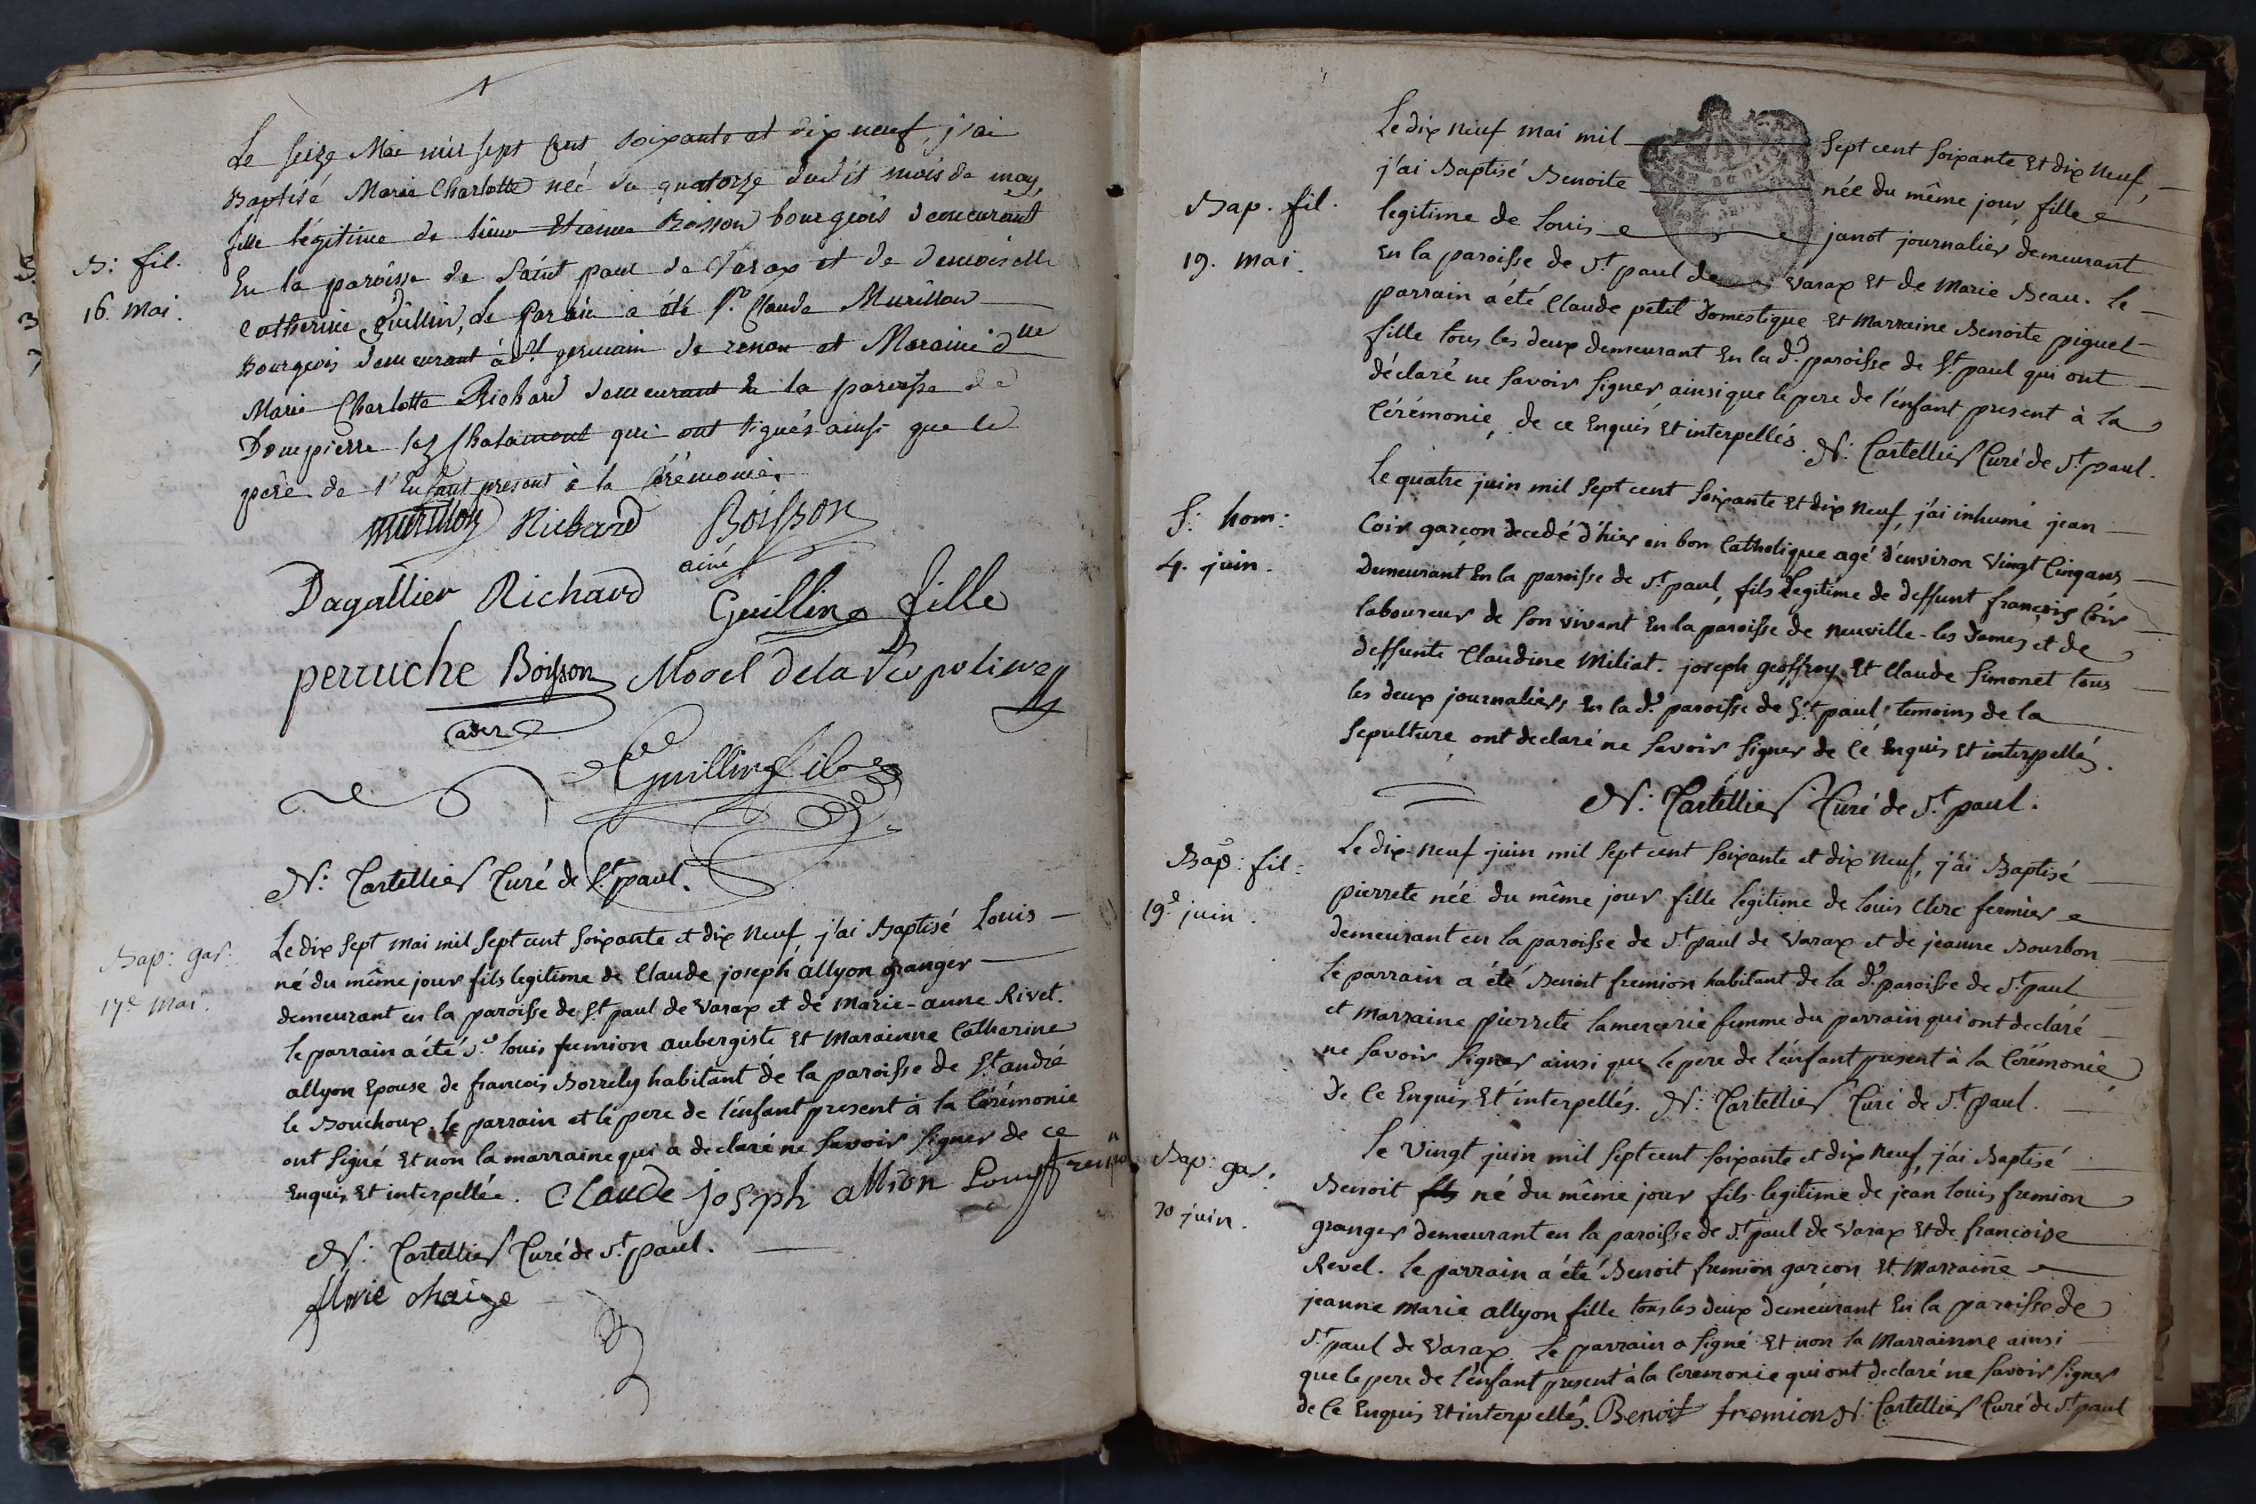 Le seize Mai mil sept cent soixante et dix neuf, j'ai
Baptisé Marie Charlotte neé du quatorze dudit mois de may,
fille légitime de sieur Etienne Boisson bourgeois demeurant
En la paroisse de Saint paul de Varax et de demoiselle
B: fil.
16. Mai.
Catherine Guillin, Le Parain a été Sr. Claude Murillon
Bourgeois demeurant à St. germain de renon et Maraine dlle
Marie Charlotte Richard demeurant En la paroisse de
Dompierre les Chalamont qui ont signés ainsi que le
père de l'Enfant present à la Cérémonie.
murillon Richard Boisson
ainé
Dagallier Richard Guillin fille
perruche Boisson Morel
cadet
Guillin fils
N: Cartellier Curé de St. paul.
Bap: gar:
17e Mai.
Le dix sept mai mil sept cent soixante et dix neuf, j'ai Baptisé Louis
né du même jour fils legitime de Claude joseph allyon granger
demeurant en la paroisse de St. paul de Varax et de Marie-anne Rivet.
le parrain a été Sr. louis fremion aubergiste Et Marainne Catherine
allyon Epouse de francois Borrely habitant de la paroisse de St andré
le Bouchoux, le parrain et le pere de l'enfant present à la Cérémonie
ont signé Et non la marraine qui a declaré ne savoir signer de ce
Enquis Et interpellée. Claude joseph allion Louis fremion
N: Cartellier Curé de St. paul.
chaize
Bap. fil.
19. mai.
Le dix neuf mai mil sept cent soixante Et dix neuf,
j'ai Baptisé Benoite née du même jour, fille
legitime de louis janot journalier demeurant
En la paroisse de St. paul de Varax Et de Marie Beau. Le
parrain a été Claude petit Domestique Et Marraine Benoite piquet
fille tous les deux demeurant En la de. paroisse de St. paul qui ont
déclaré ne savoir signer ainsi que le pere de l'enfant present à la
Cérémonie, de ce Enquis Et interpellés. N: Cartellier Curé de St. paul.
S: hom:
4. juin.
Le quatre juin mil sept cent soixante Et dix neuf, j'ai inhumé jean
Coir garçon decedé d'hier en bon Catholique agé d'environ Vingt Cinq ans
Demeurant En la paroisse de St. paul, fils Legitime de deffunt françois Coir
laboureur de son vivant En la paroisse de neuville-les dames et de
deffunte Claudine Miliat. joseph geoffroy Et Claude Simonet tous
les deux journaliers En la de. paroisse de St. paul temoins de la
Sepulture, ont declaré ne savoir signer de Cé Enquis Et interpellés.
N: Cartellier Curé de St. paul.
Bap: fil:
19e juin.
Le dix-neuf juin mil sept cent soixante et dix neuf, j'ai Baptisé
pierrete née du même jour fille legitime de louis Clerc fermier
demeurant en la paroisse de St. paul de Varax et de jeanne Bourbon
le parrain a été Benoit fremion habitant de la de. paroisse de St. paul
et marraine pierrete lamercerie femme du parrain qui ont declaré
ne savoir signer ainsi que le pere de l'enfant present à la Cérémonie
De Ce Enquis Et interpellés. N: Cartellier Curé de St. paul.
Bap: gar:
20 juin.
Le Vingt juin mil sept cent soixante et dix neuf, j'ai Baptisé
Benoit fils né du même jour fils legitime de jean louis fremion
granger demeurant en la paroisse de St. paul de Varax Et de françoise
Revel. le parrain a été Benoit fremion garçon Et Marraine
jeanne Marie allyon fille tous les deux demeurant En la paroisse de
St. paul de Varax. le parrain a signé Et non la Marrainne ainsi
que le pere de l'enfant present à la Ceremonie qui ont declaré ne savoir signer
de Ce Enquis Et interpellés. Benoit fremion N: Cartellier Curé de St. paul